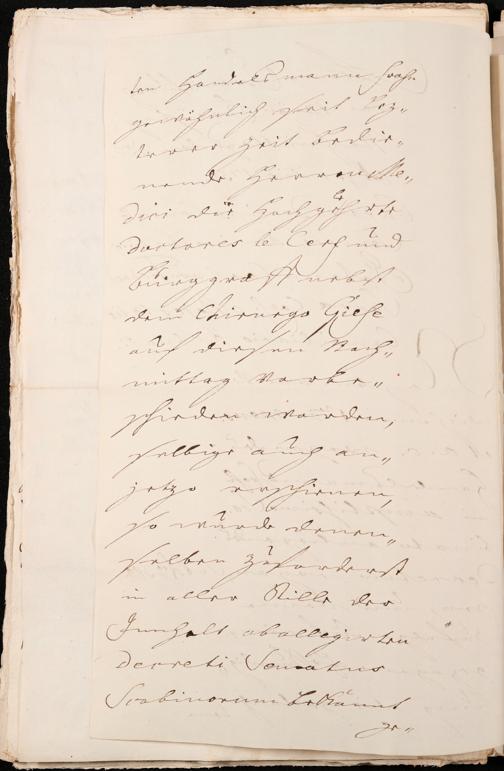 ten Handelsmann sonst
gewöhnlich seit letz„
terer Zeit bedie„
nende Herren Me„
dici die Hochgelehrte
Doctores le Cerf und
Burggraff nebst
dem Chirurgo Giese
auf diesen Nach„
mittag vorbe„
schieden worden,
selbige auch an„
jetzo erschienen,
so wurde denen„
selben zuforderst
in aller Stille der
Innhalt aballegirten
Decreti Senatus
Scabinorum bekannt
ge„